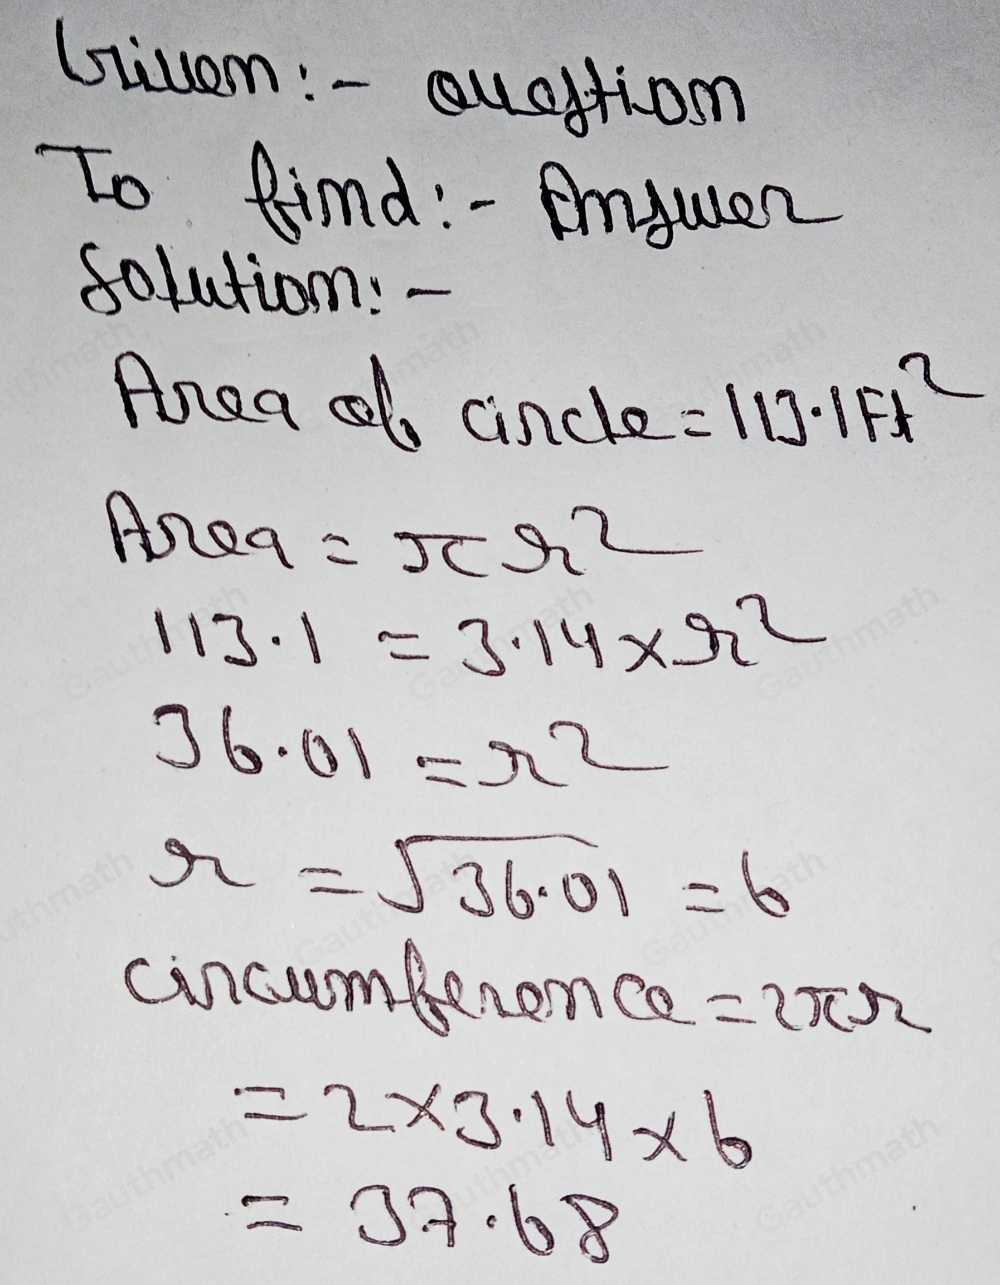 Given:- question
To find:- Answer
Solution:-
Area of circle = 113.1 Ft²
Area = πr²
113.1 = 3.14 × r²
36.01 = r²
r = √36.01 = 6
circumference = 2πr
= 2×3.14×6
= 37.68